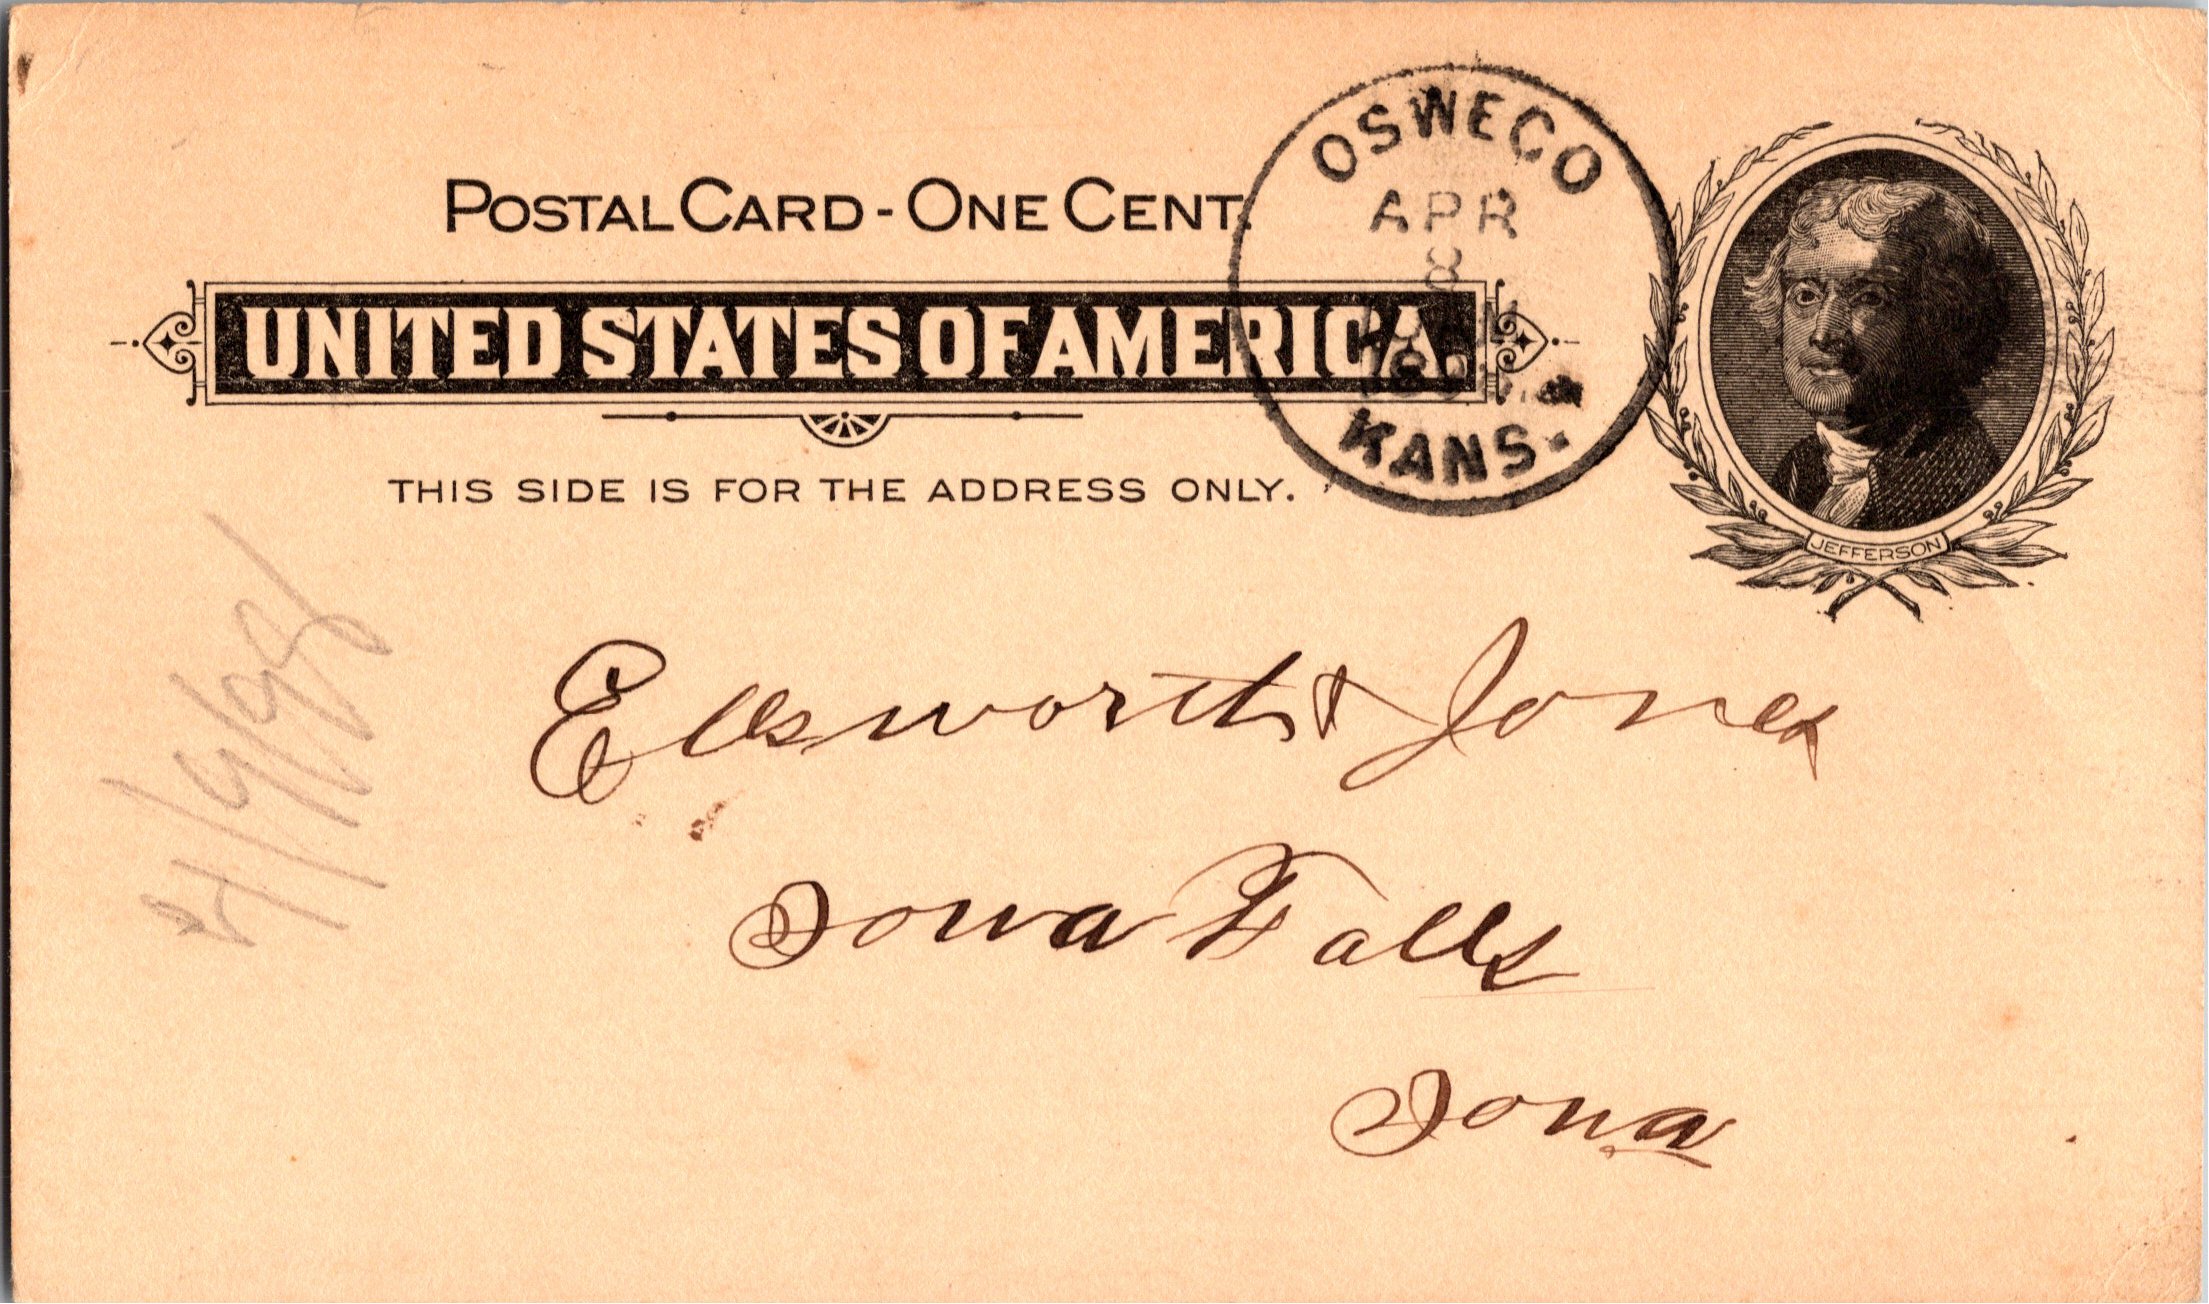 POSTAL CARD - ONE CENT.
UNITED STATES OF AMERICA.
THIS SIDE IS FOR THE ADDRESS ONLY.
OSWEGO
APR
8
KANS.
JEFFERSON
Ellsworth & Jones
Iowa Falls
Iowa